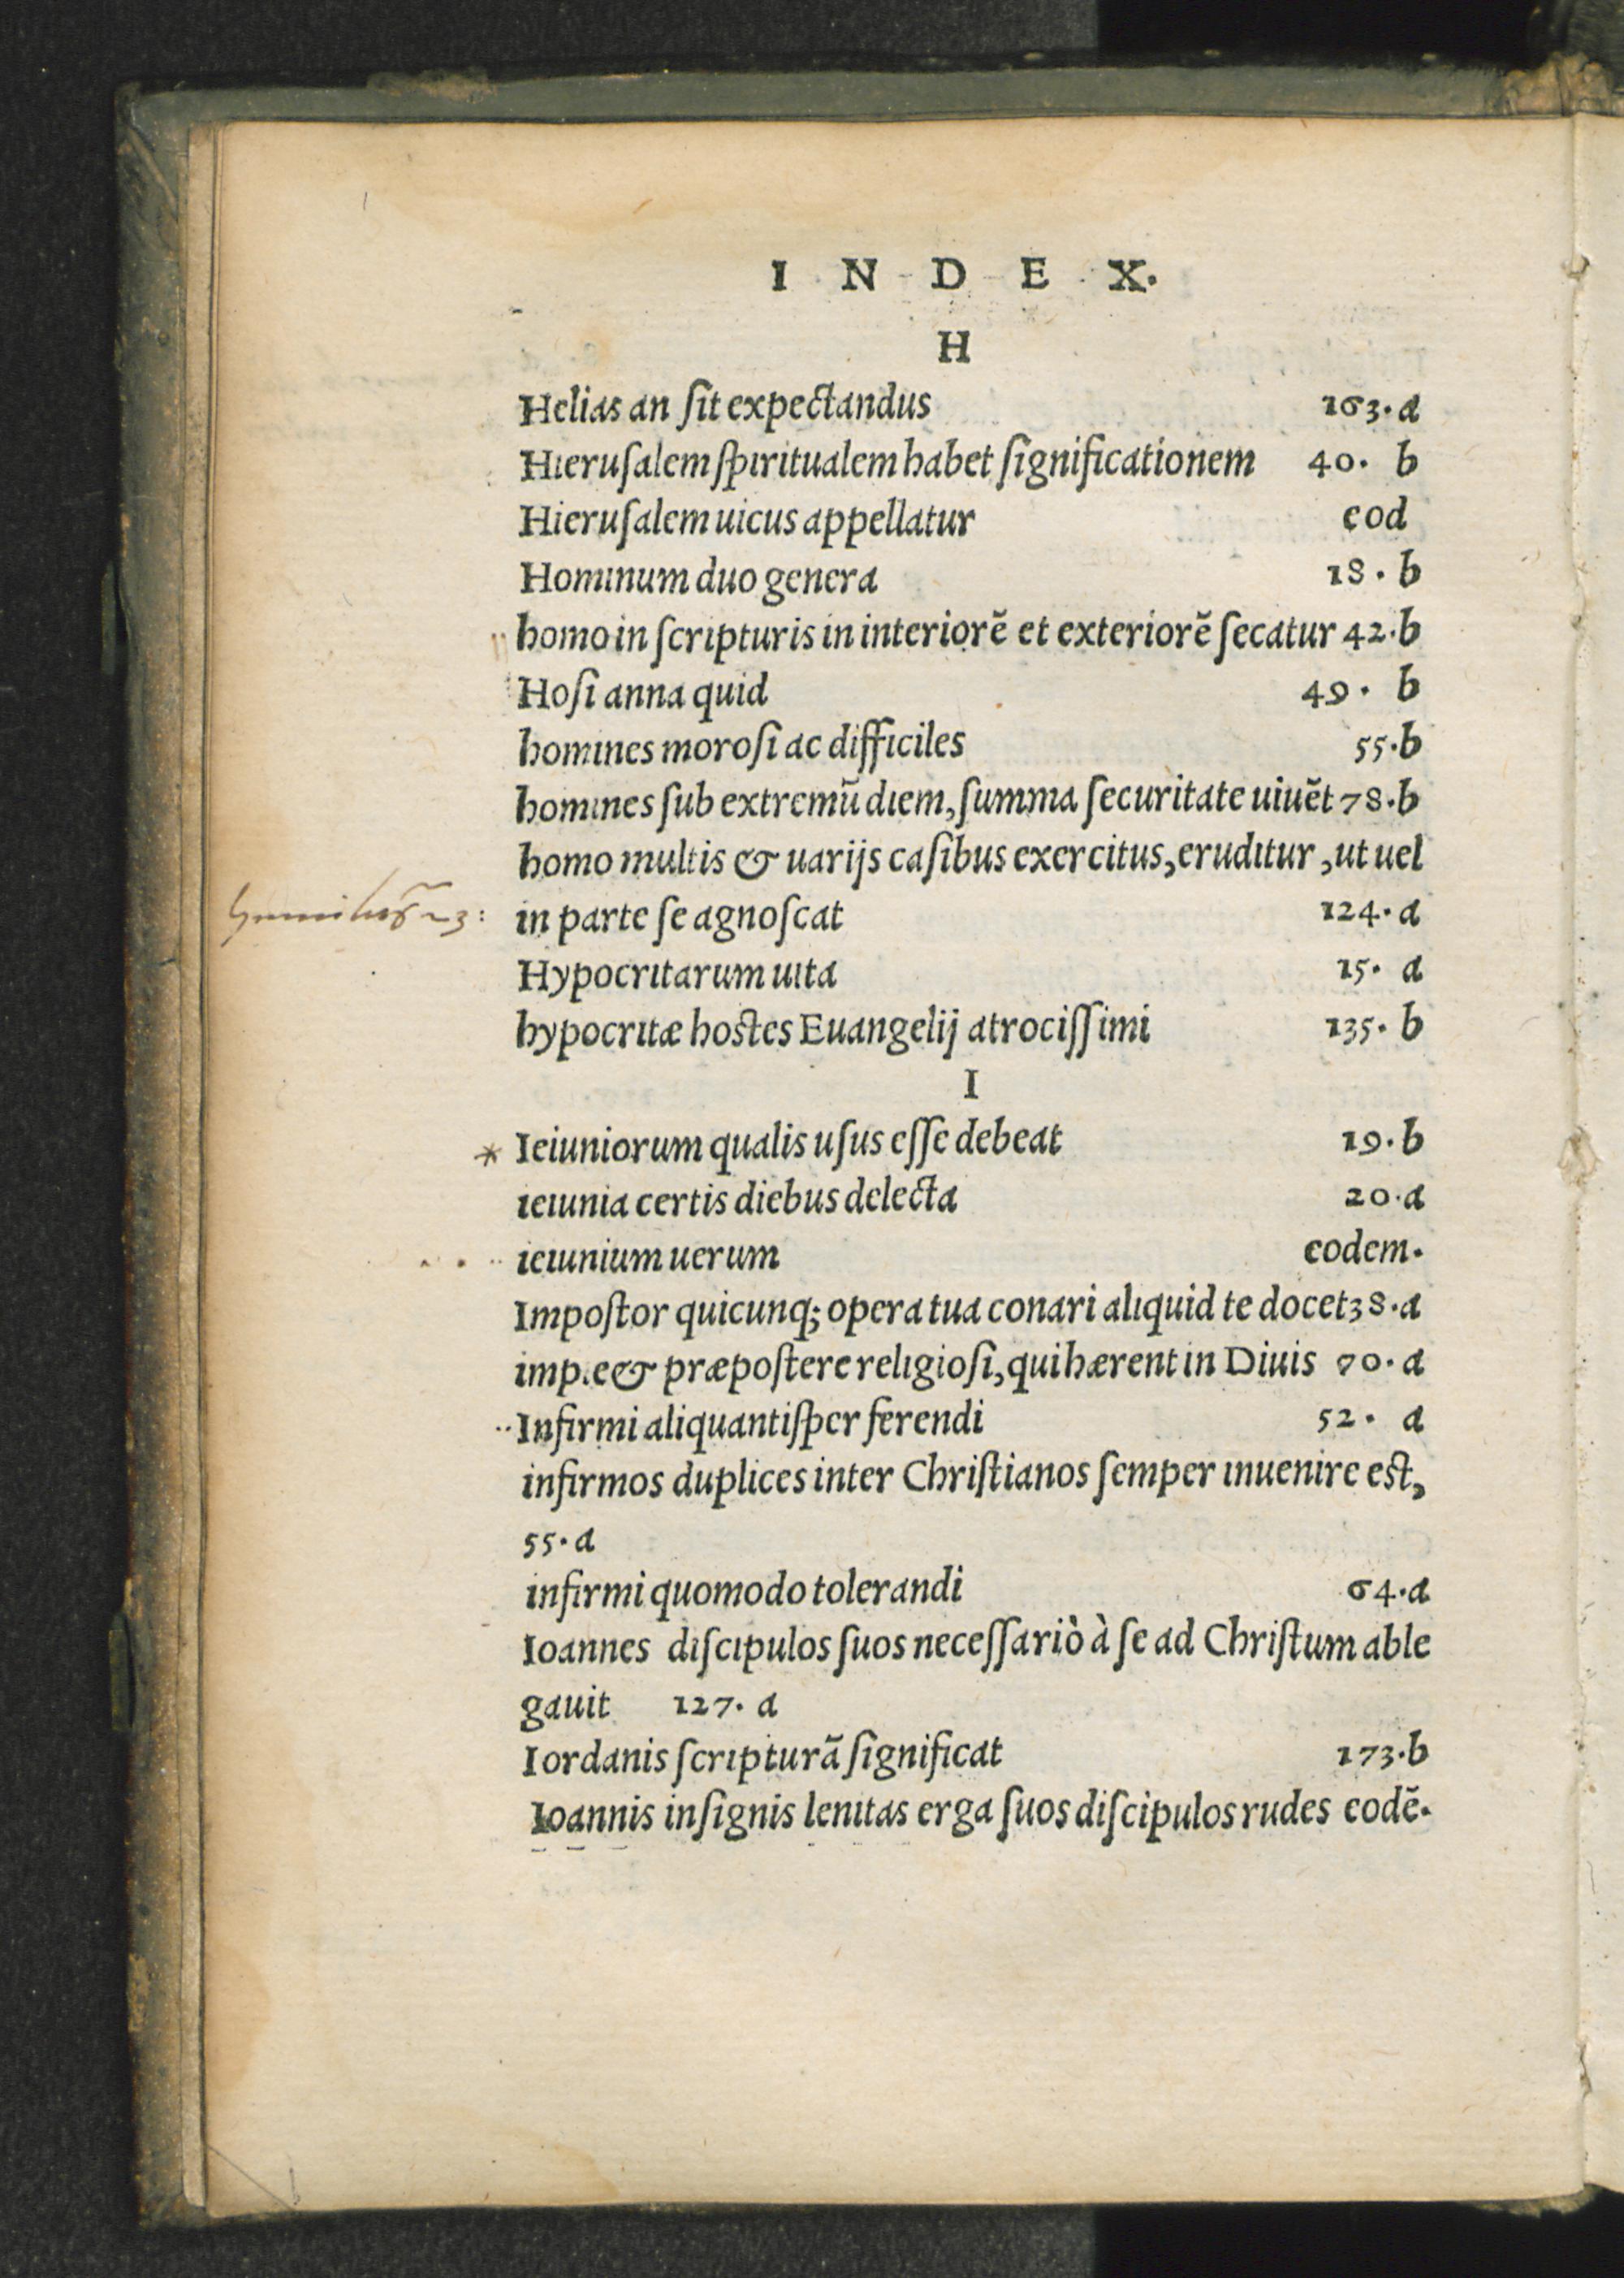 I N D E X.
H
Helias an ſit expectandus 163. a
Hieruſalem ſpiritualem habet ſignificationem 40. b
Hieruſalem uicus appellatur eod
Hominum duo genera 18. b
homo in ſcripturis in interiorē et exteriorē ſecatur 42. b
Hoſi anna quid 49. b
homines moroſi ac difficiles 55. b
homines ſub extremū diem, ſumma ſecuritate uiuēt 78. b
homo multis & uarijs caſibus exercitus, eruditur, ut uel
in parte ſe agnoſcat 124. a
Hypocritarum uita 15. a
hypocritæ hoſtes Euangelij atrociſſimi 135. b
I
* Ieiuniorum qualis uſus eſſe debeat 19. b
ieiunia certis diebus delecta 20. a
ieiunium uerum eodem.
Impoſtor quicunq; opera tua conari aliquid te docet 38. a
impie & præpoſtere religioſi, qui hærent in Diuis 70. a
Infirmi aliquantiſper ferendi 52. a
infirmos duplices inter Chriſtianos ſemper inuenire eſt,
55. a
infirmi quomodo tolerandi 64. a
Ioannes diſcipulos ſuos neceſſariò à ſe ad Chriſtum able
gauit 127. a
Iordanis ſcripturā ſignificat 173. b
Ioannis inſignis lenitas erga ſuos diſcipulos rudes eodē.